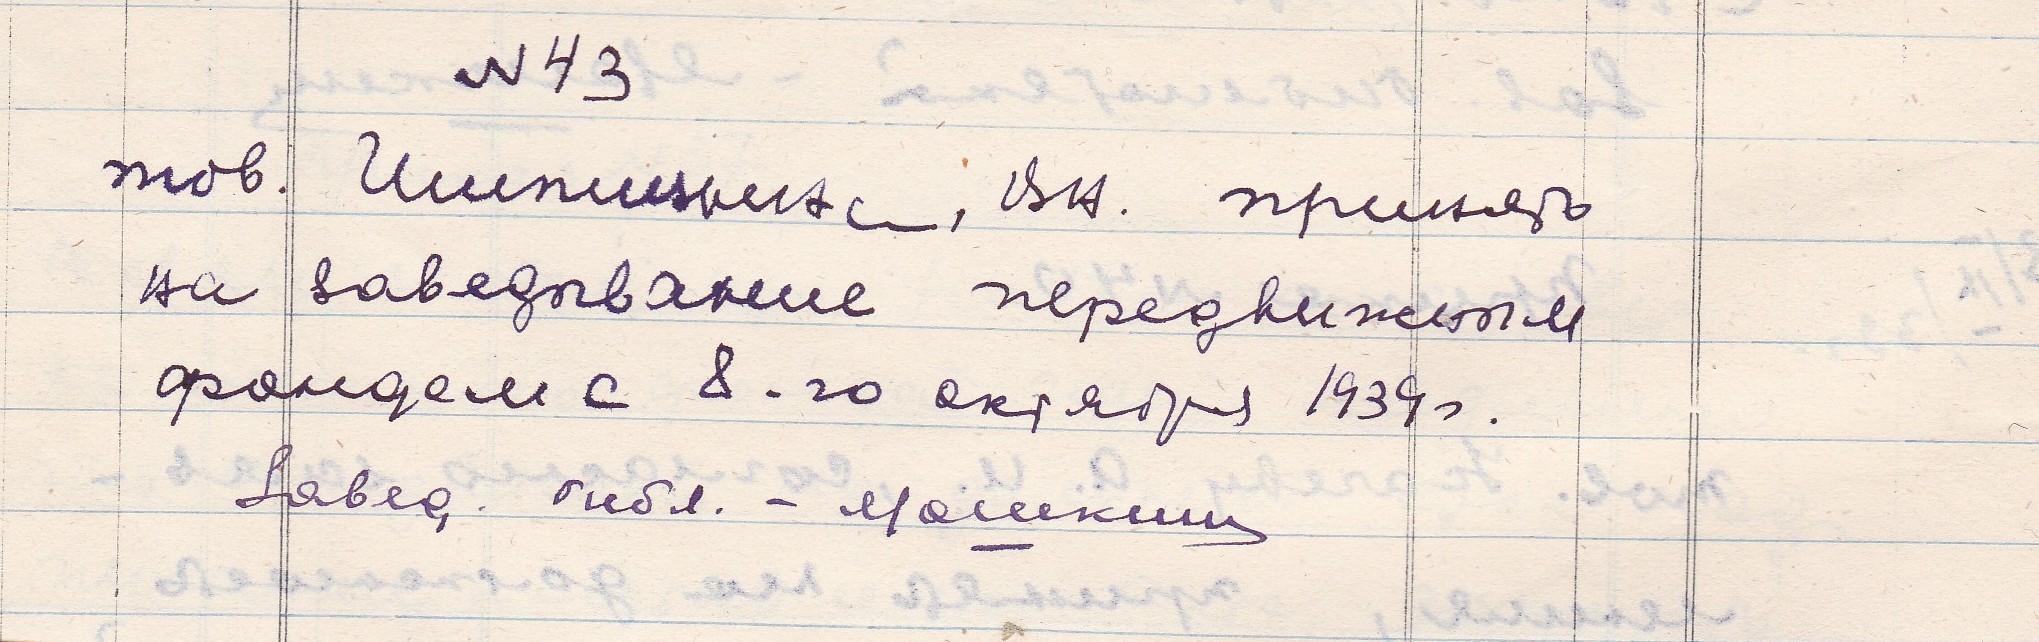 № 43
тов. принять
на заведывание передвижным
фондом с 8-го октября 1939 г.
Завед. библ. – Мошкин